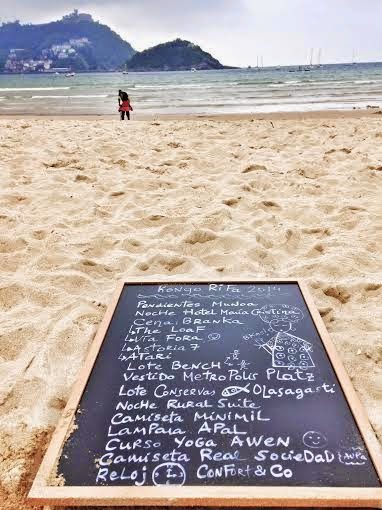 Kongo Rifa 2014
Pendientes Munoa
Noche Hotel María Cristina
Cena: Branka
↳ The Loaf
↳ Via Fora
↳ Astoria 7
↳ Atari
Lote Bench
Vestido Metropolis Platz
Lote Conservas Olasagasti
Noche Rural Suite
Camiseta Minimil
Lampara Apal
Curso Yoga Awen
Camiseta Real Sociedad ¡Aupa
Reloj Confort & Co